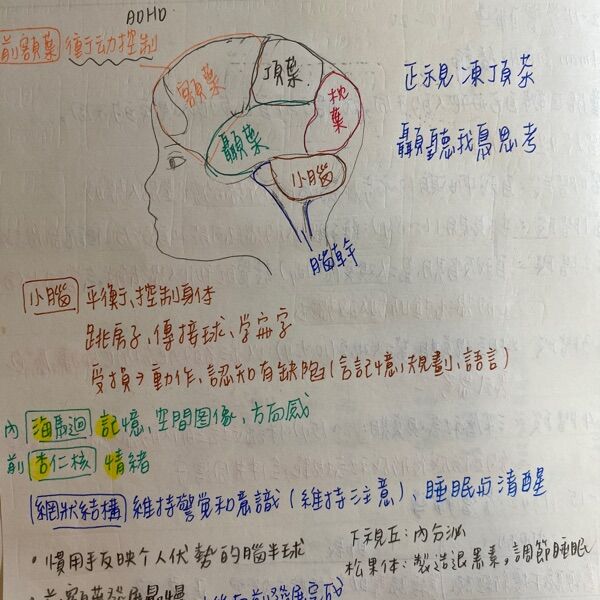 ADHD.
前額葉 衝动控制
額葉
頂葉
枕葉
顳葉
小腦
腦幹
正示見凍頂茶
顳聽我憂思考
小腦 平衡、控制身体
跳房子、傳接球、学寫字
受損→動作、認知有缺陷(含記憶、規劃、語言)
內 海馬迴 記憶、空間图像、方向感
前 杏仁核 情緒
網狀結構 維持警觉和意識(維持注意)、睡眠与清醒
• 慣用手反映个人优勢的腦半球
下視丘:內分泌
松果体:製造退黑素,調節睡眠
• 前額葉發展最慢